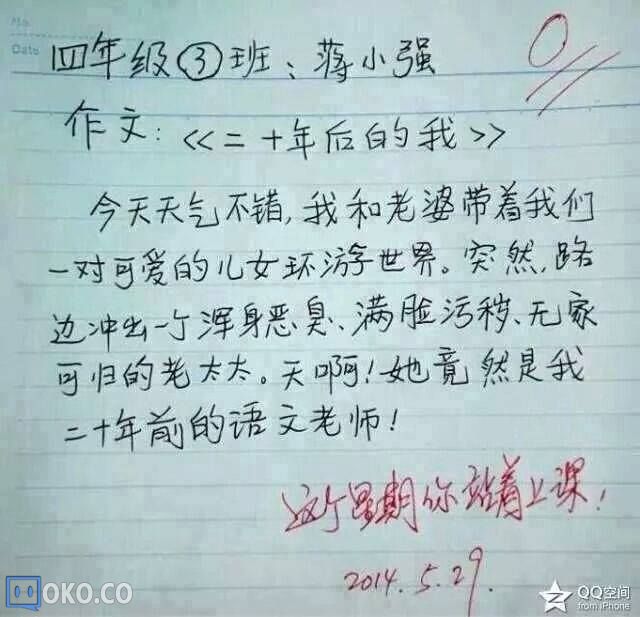 No
Date
四年级③班：蒋小强
0
作文：《二十年后的我》
今天天气不错，我和老婆带着我们
一对可爱的儿女环游世界。突然，路
边冲出一个浑身恶臭、满脸污秽、无家
可归的老太太。天啊！她竟然是我
二十年前的语文老师！
这个星期你站着上课！
2014.5.29.
OKO.CO
QQ空间
from iPhone